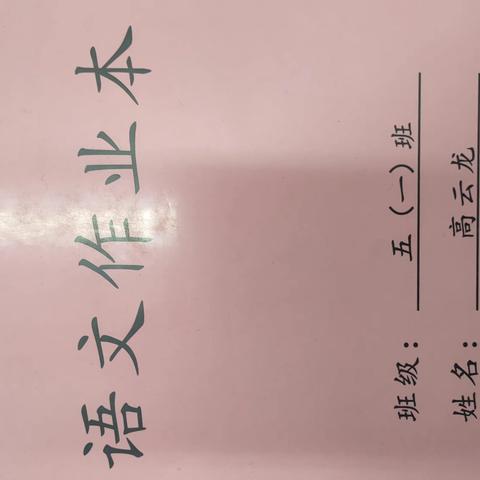 语文作业本
班级：五（一）班
姓名：高云龙